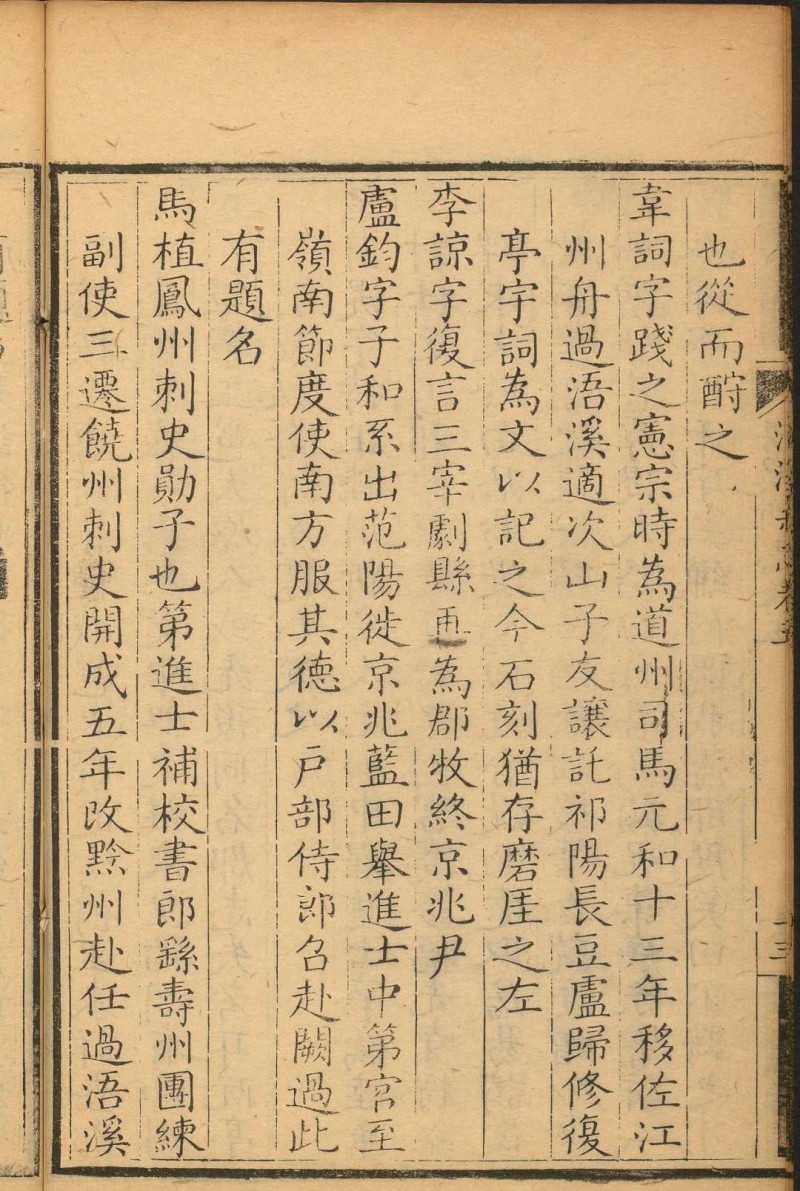 也從而酹之
韋詞字踐之憲宗時為道州司馬元和十三年移佐江
州舟過浯溪適次山子友讓託祁陽長豆盧歸修復
亭宇詞為文以記之今石刻猶存磨厓之左
李諒字復言三宰劇縣再為郡牧終京兆尹
盧鈞字子和系出范陽徙京兆藍田舉進士中第官至
嶺南節度使南方服其德以戶部侍郎召赴闕過此
有題名
馬植鳳州刺史勛子也第進士補校書郎繇壽州團練
副使三遷饒州刺史開成五年改黔州赴任過浯溪